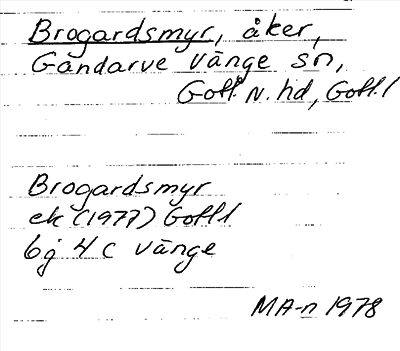 Brogardsmyr, åker,
Gandarve Vänge sn,
Gotl. N. hd, Gotl. l
Brogardsmyr
ek (1977) Gotl l
6j 4 c Vänge
MA-n 1978